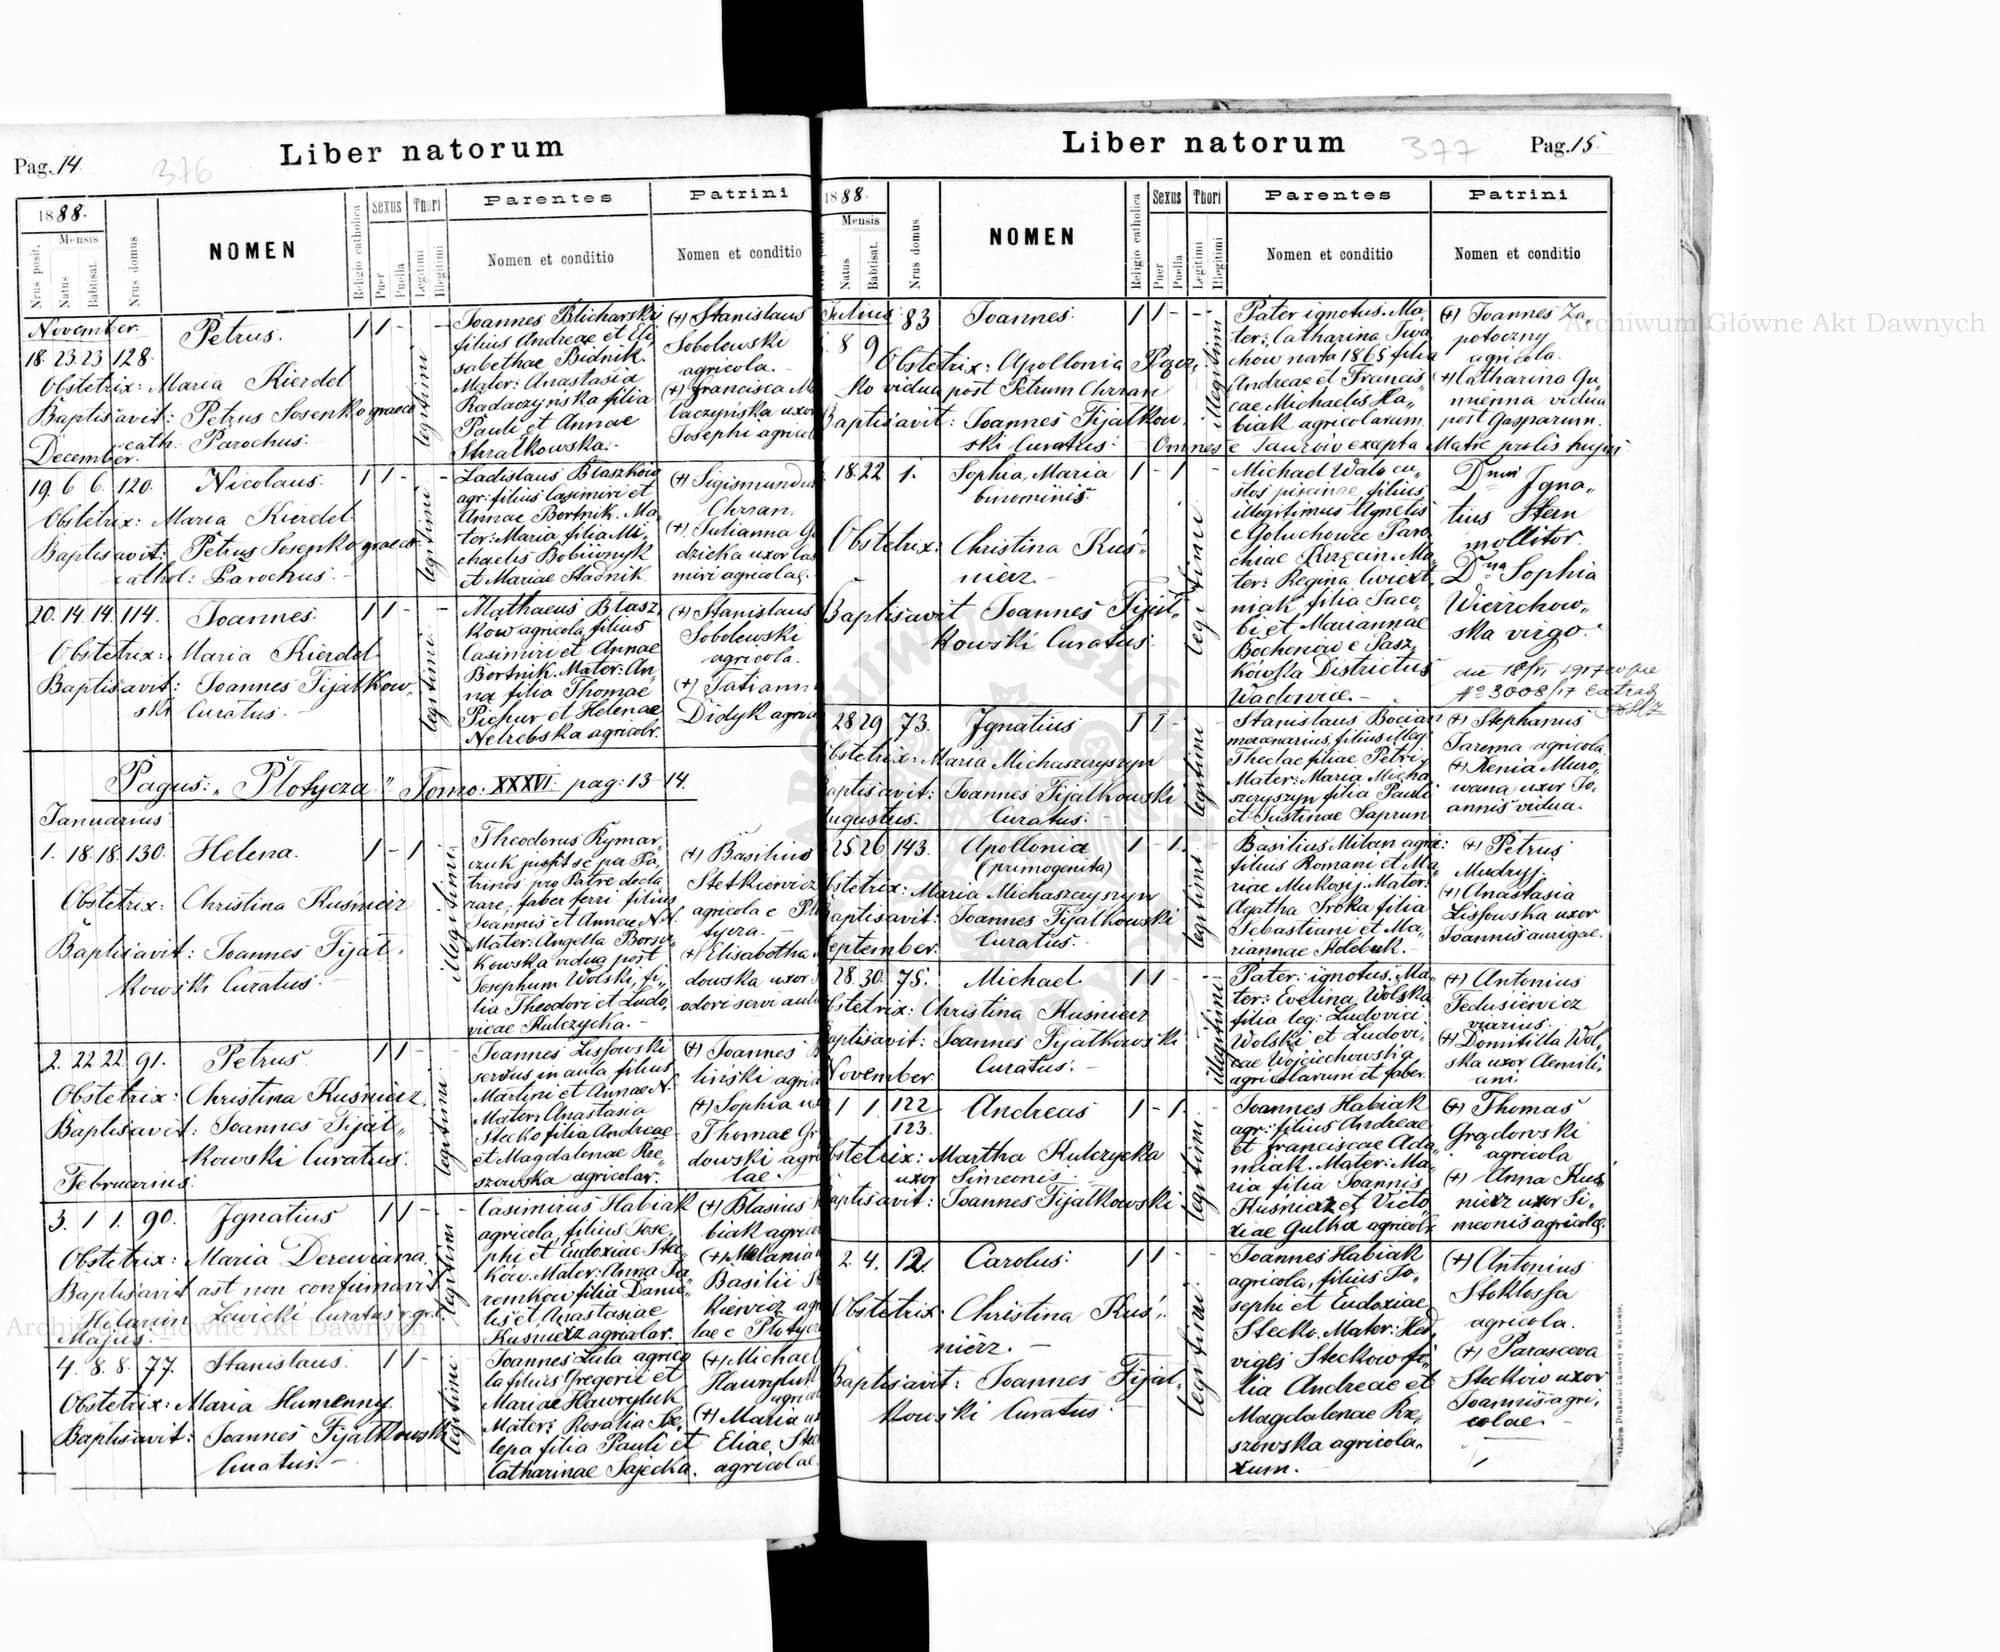 Pag. 14
376
Liber natorum
1888.
Mensis
Nrus posit.
Natus
Babtisat.
Nrus domus
NOMEN
Religio catholica
Sexus
Puer
Puella
Thori
Legitimi
Illegitimi
Parentes
Nomen et conditio
Patrini
Nomen et conditio
November.
18. 23 23 128. Petrus. 1 1 - -
Obstetrix: Maria Kierdel
Baptisavit: Petrus Sosenko graeco
cath. Parochus.
legitimi
Joannes Blicharski
filius Andreae et Eli,,
sabethae Bidnik.
Mater: Anastasia
Radaczyńska filia
Pauli et Annae
Strałkowska.
(+) Stanislaus
Sobolewski
agricola.
(+) Francisca
uxor
Josephi
December.
19. 6. 6. 120. Nicolaus. 1 1 - -
Obstetrix: Maria Kierdel
Baptisavit: Petrus Sosenko graeco
cathol: Parochus.
legitimi
Ladislaus Błaszków
agr: filius Casimiri et
Annae Bortnik. Ma,,
ter: Maria filia Mi,,
chaelis Bobiwnyk
et Mariae Stadnik.
(+) Sigismundus
Chrzan.
(+) Julianna
dzicka uxor
miri agricolae.
20. 14. 14. 114. Joannes. 1 1 - -
Obstetrix: Maria Kierdel
Baptisavit: Joannes Fijałkow,,
ski Curatus.
legitimi
Mathaeus Błasz,,
ków agricola, filius
Casimiri et Annae
Bortnik. Mater: An,,
na filia Thomae
Pichur et Helenae
Netrebska agricolr.
(+) Stanislaus
Sobolewski
agricola.
(+) Tatianna
Didyk
Pagus: „Płotycza" Tomo: XXXVI. pag: 13-14.
Januarius
1. 18. 18. 130. Helena. 1 - 1
Obstetrix: Christina Kuśnierz
Baptisavit: Joannes Fijał,,
kowski Curatus.
illegitimi
Theodorus Rymar,,
czuk
trinos pro Patre decla
rare, faber ferri filius
Joannis et Annae N.
Mater: Angella Borsu,,
kowska vidua post
Josephum Wolski, fi,,
lia Theodori et Ludo,,
vicae Kulczycka.
(+) Basilius
Stetkiewicz
agricola e
tycza.
(+) Elisabetha
dowska uxor
odori servi
2. 22 22 91. Petrus 1 1 -
Obstetrix: Christina Kuśnierz
Baptisavit: Joannes Fijał,,
kowski Curatus.
legitimi
Joannes Lissowski
servus in aula filius
Martini et Annae N.
Mater: Anastasia
Stecko filia Andreae
et Magdalenae Rze,,
szowska agricolar.
(+) Joannes
liński
(+) Sophia
Thomae
dowski
lae.
Februarius
3. 1 1. 90. Ignatius 1 1 -
Obstetrix: Maria Derewiana.
Baptisavit ast non confirmavit
Hilarion Lewicki Curatus r. gr.
legitimi
Casimirus Habiak
agricola, filius Jose,,
phi et Eudoxiae Ste,,
ków. Mater: Anna Ja,,
remków filia Danie,,
lis et Anastasiae
Kusnierz agricolar.
(+) Blasius
biak
(+) Melania
Basilii
kiewicz
lae e
Majus.
4. 8. 8. 77. Stanislaus. 1 1 -
Obstetrix: Maria Humenny.
Baptisavit: Joannes Fijałkowski
Curatus.
legitimi
Joannes Luta agrico
la filius Gregorii et
Mariae Hawryluk
Mater: Rosalia Sze,,
lepa filia Pauli et
Catharinae Sajecka.
(+) Michael
Hawryluk
(+) Maria
Eliae
agricolae
Liber natorum
377
Pag. 15
1888.
Mensis
Natus
Babtisat.
Nrus domus
NOMEN
Religio catholica
Sexus
Puer
Puella
Thori
Legitimi
Illegitimi
Parentes
Nomen et conditio
Patrini
Nomen et conditio
Julius
8 9 83 Joannes. 1 1 - -
Obstetrix: Apollonia
ko vidua post Petrum Chrzan
Baptisavit: Joannes Fijałkow,,
ski Curatus.
Omnes e Taurów excepta Matre prolis hujus
illegitimi
Pater ignotus. Ma,,
ter: Catharina Iwa,,
chow nata 1865 filia
Andreae et Francis,,
cae Michaelis Ha,,
biak agricolarum.
(+) Joannes Za,,
potoczny
agricola.
(+) Catharina Gu,,
mienna vidua
post Gasparum.
18. 22 1. Sophia, Maria 1 - 1
binominis.
Obstetrix: Christina Kuś,,
nierz.
Baptisavit Joannes Fijał,,
kowski Curatus.
legitimi
Michael Walo cu,,
stos piscinae, filius
illegitimus Agnetis
e Gołuchowce Paro
chiae Krzęcin. Ma,,
ter: Regina Cwiert,,
niak filia Jaco,,
bi et Mariannae
Bochenów e Pasz,,
kówka Districtus
Wadowice.
Dnus Igna,,
tius Stern
mollitor.
Dna Sophia
Wierzchow,,
ska virgo.
28 29 73. Ignatius 1 1 -
Obstetrix: Maria Michaszczyszyn
Baptisavit: Joannes Fijałkowski
Curatus.
legitimi
Stanislaus Bocian
mercenarius, filius illeg:
Theclae filiae Petri.
Mater: Maria Micha
szczyszyn filia Pauli
et Justinae Saprun
(+) Stephanus
Jarema agricola.
(+) Xenia Muro,,
wana uxor Jo,,
annis vidua.
Augustus.
25 26 143. Apollonia 1 - 1.
(primogenita)
Obstetrix: Maria Michaszczyszyn
Baptisavit: Joannes Fijałkowski
Curatus.
legitimi
Basilius Milan agr:
filius Romani et Ma
riae Mukosij. Mater:
Agatha Sroka filia
Sebastiani et Ma,,
riannae Hołebuk.
(+) Petrus
Mudryj.
(+) Anastasia
Lissowska uxor
Joannis aurigae.
September.
28. 30. 75. Michael 1 1 -
Obstetrix: Christina Kuśnierz
Baptisavit: Joannes Fijałkowski
Curatus.
illegitimi
Pater: ignotus. Ma,,
ter: Evelina Wolska
filia leg: Ludovici
Wolski et Ludovi,,
cae Wojciechowska
agricolarum et faber.
(+) Antonius
Fedusiewicz
viarius.
(+) Domitilla Wol,,
ska uxor Aemili,,
ani.
November
1 1. 122
123. Andreas 1 - 1.
Obstetrix: Martha Kulczycka
uxor Simeonis.
Baptisavit: Joannes Fijałkowski
legitimi
Joannes Habiak
agr: filius Andreae
et Franciscae Ada,,
miak. Mater: Ma,,
ria filia Joannis
Kuśnierz et Victo,,
riae Gulka agricolr.
(+) Thomas
Grądowski
agricola
(+) Anna Kuś,,
nierz uxor Si,,
meonis agricolae.
2. 4. 121. Carolus. 1 1 -
Obstetrix: Christina Kuś,,
nierz.
Baptisavit: Joannes Fijał,,
kowski Curatus
legitimi
Joannes Habiak
agricola, filius Jo,,
sephi et Eudoxiae
Stecko. Mater: Hed,,
vigis Steckow fi,,
lia Andreae et
Magdalenae Rze,,
szowska agricola,,
rum.
(+) Antonius
Stokłossa
agricola.
(+) Parasceva
Steckow uxor
Joannis agri,,
colae.
Archiwum Główne Akt Dawnych
Archiwum Główne Akt Dawnych